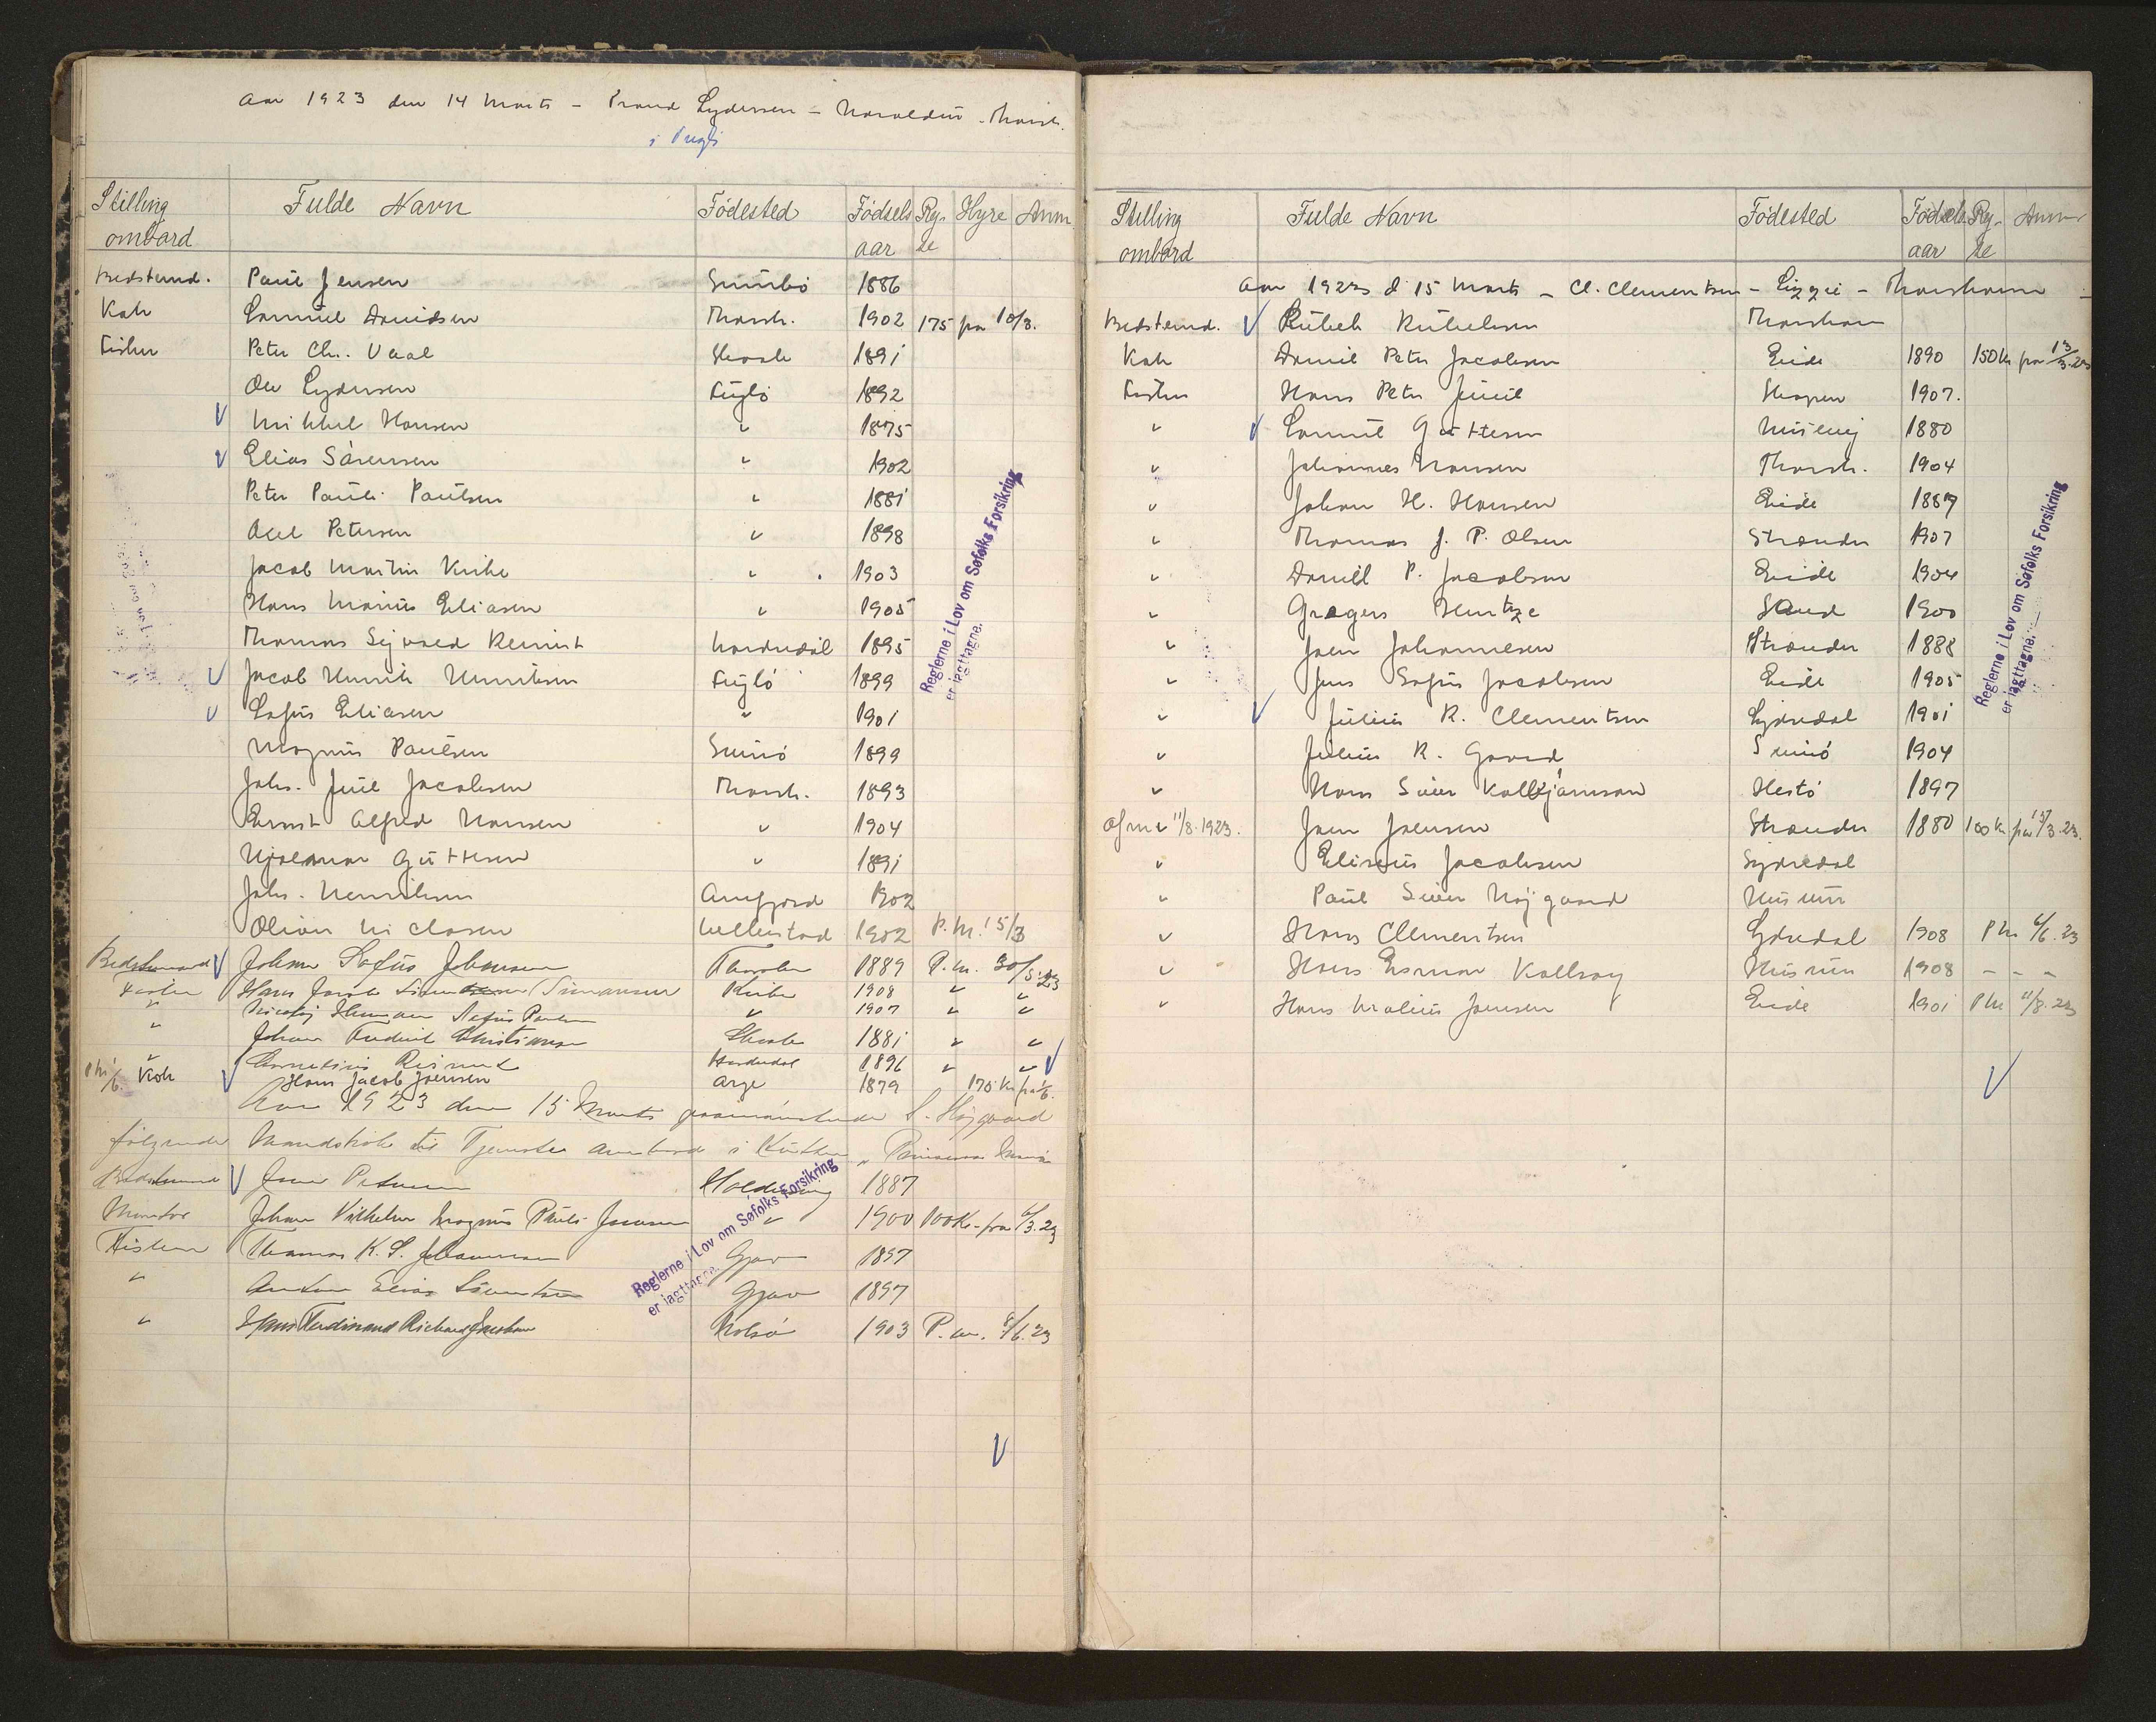 Aar 1923 den 14 Marts - Trond Lydersen - Haraldur - Thorsh.
i Fuglø
Stilling ombord Fulde Navn Fødested Fødsels aar Ry- Hyre Anm
Bedstemd. Paul Jensen Sumbø 1886
Kok Samuel Davidsen Thorsh. 1902 175 fra 10/3.
Fisker Peter Chr. 1891
Ole Lydersen Fuglø 1892
Mikkel Hansen " 1875
Elias Sørensen " 1902
Peter Pauli Poulsen " 1881
Axel Petersen " 1898
Jacob Martin Kirke " 1903
Hans Marius Eliasen " 1905
Thomas Sigvald Reinert Hardedal 1895
Jacob Henrik Henriksen Fuglø 1899
Sofus Eliasen " 1901
Magnus Poulsen Svinø 1899
Johs. Juul Jacobsen Thorsh. 1893
Ernst Alfred Hansen " 1904
Hjalmar Guttesen " 1891
Johs. Henriksen Arnefjord 1902
Oliver Niclasen Vellestad 1902 P.M. 15/3
Bedstemand Johan Sofus Johansen 1889 P.m. 30/5.23
Fisker Hans Jacob Simonsen Kirke 1908 " "
" Nicolaj Poulsen " 1907 " "
" Johan Fredrik Christiansen 1881 " "
" Cornelius Reinert Hardedal 1896 " "
Kok Hans Jacob Joensen Arge 1879 175 Kr fra 1/6.
Aar 1923 den 15 Marts paamønstrede S. Højgaard
følgende Mandskab til Tjeneste ombord i Kutter "Prinsesse Marie
Bedstemand Petersen Haldersvig 1887
Johan Vilhelm Magnus Pauli Joensen " 1900 100 Kr. fra 6/3.23
Fisker Thomas K. S. Johannesen Gjov 1897
" Anton Elias Gjov 1897
" Hans Ferdinand Richard Jacobsen Nolsø 1903 P.m. 8/6.23
Reglerne i Lov om Søfolks Forsikring
er iagttagne.
Reglerne i Lov om Søfolks Forsikring
er iagttagne.
Stilling ombord Fulde Navn Fødested Fødsels aar Ry- Anm
Aar 1923 d 15 Marts - Cl. Clementsen - Lizzie - Thorshavn
Bedstemd. Rubek Rubeksen Thorshavn
Kok Daniel Peter Jacobsen Eide 1890 150 Kr fra 13/3.23
Fisker Hans Peter Juul Skopen 1907.
" Samuel Guttesen Husevig 1880
" Johannes Hansen Thorsh. 1904
" Johan H. Hansen Eide 1887
" Thomas J. P. Olsen Strænder 1907
" Daniel P. Jacobsen Eide 1904
" Gregers Hentze Sand 1900
" Joen Johannesen Strænder 1888
" Jens Sofus Jacobsen Eide 1905
" Julius R. Clementsen Sydredal 1901
" Julius R. Gaard Svinø 1904
" Hans Sivar Kallbjørnson Hestø 1897
11/8.1923. Joen Joensen Strænder 1880 100 Kr fra 15/3.23.
" Eliseus Jacobsen Sydredal
" Paul Sivar Højgaard Husum
" Hans Clementsen Sydredal 1908 P M 6/6.23
" Hans Esmar Kallsoy Husum 1908 - - -
" Hans Joensen Eide 1901 P M 11/8.23
Reglerne i Lov om Søfolks Forsikring
er iagttagne.